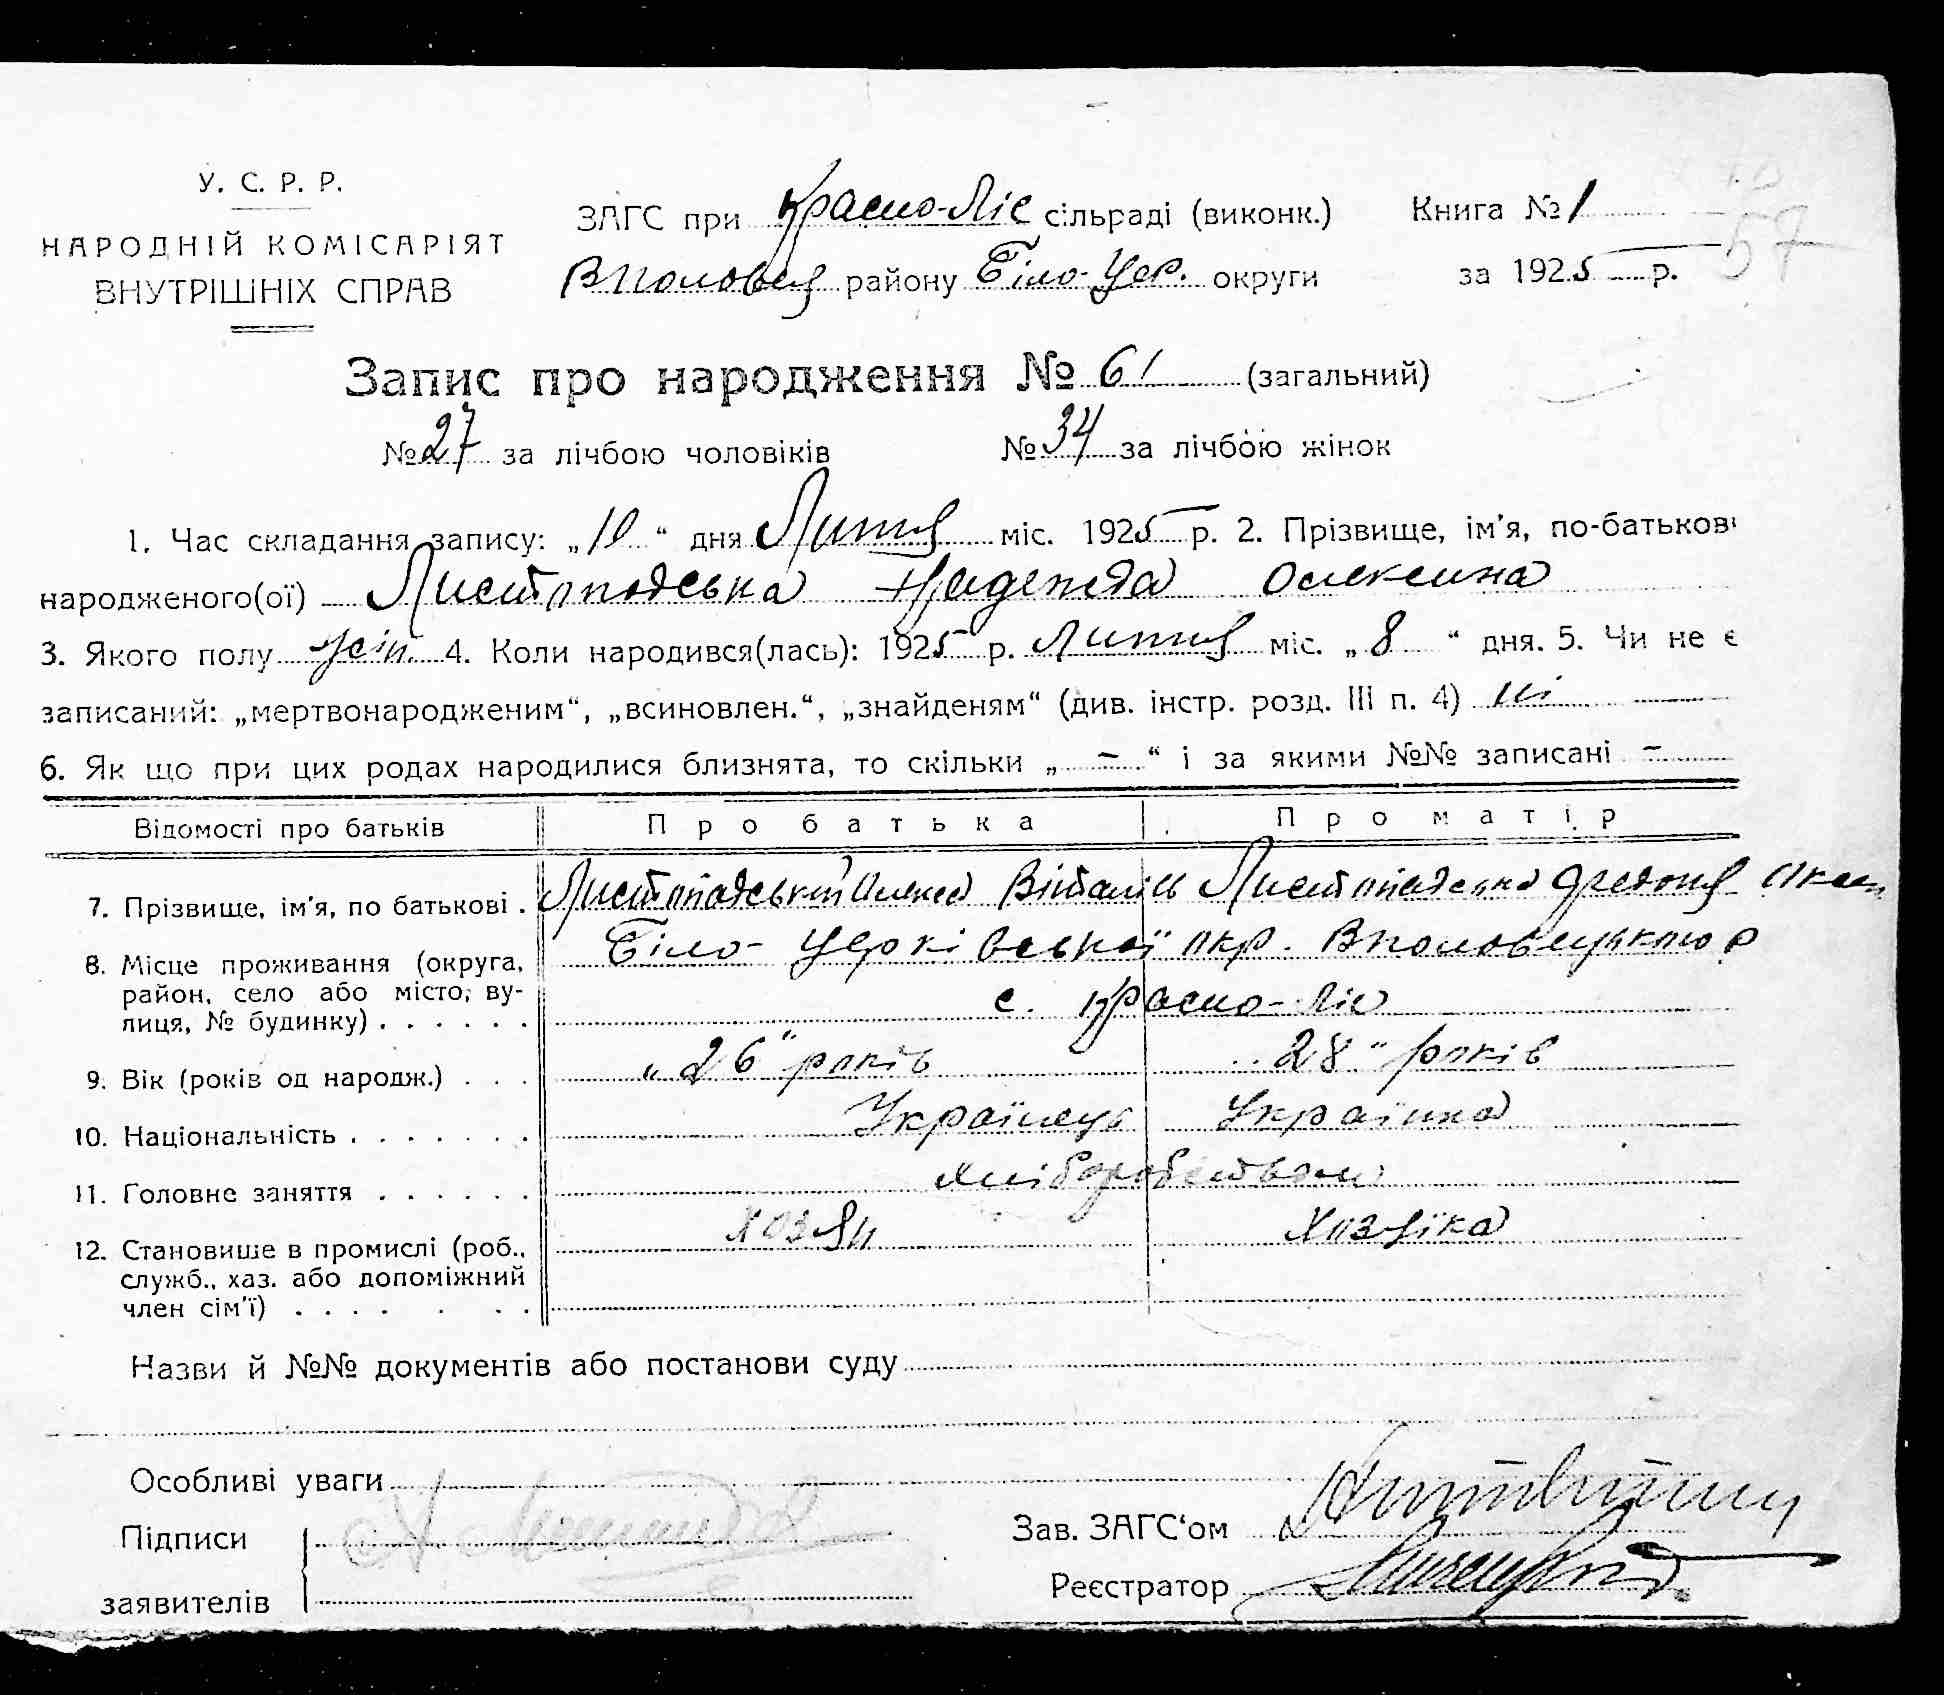 У. С. Р. Р.
НАРОДНІЙ КОМІСАРІЯТ
ВНУТРІШНІХ СПРАВ
ЗАГС при Красно-Ліс сільраді (виконк.)
Книга № 1
57
Вполовец району Біло-Цер. округи
за 1925 р.
Запис про народження № 61 (загальний)
№ 27 за лічбою чоловіків № 34 за лічбою жінок
1. Час складання запису: „10“ дня Лютня міс. 1925 р. 2. Прізвище, ім'я, по-батькові
народженого(ої) Листопадська Надежда Олексіина
3. Якого полу жін. 4. Коли народився(лась): 1925 р. Лютня міс. „8“ дня. 5. Чи не є
записаний: „мертвонародженим“, „всиновлен.“, „знайденям“ (див. інстр. розд. III п. 4) ні
6. Як що при цих родах народилися близнята, то скільки „ – “ і за якими №№ записані –
Відомості про батьків Про батька Про матір
7. Прізвище, ім'я, по батькові . Листопадський Олексій Віталіів Листопадська
8. Місце проживання (округа, район, село або місто, вулиця, № будинку) . . . . . . Біло-Церківської окр. Вполовецького р
с. Красно-Ліс
9. Вік (років од народж.) . . . „26“ років „28“ років
10. Національність . . . . . . . Українець Українка
11. Головне заняття . . . . . . хліборобством
12. Становише в промислі (роб., служб., хаз. або допоміжний член сім'ї) . . . . . . . хозяін хозяіка
Назви й №№ документів або постанови суду
Особливі уваги
Підписи
заявителів
Зав. ЗАГС'ом
Реєстратор